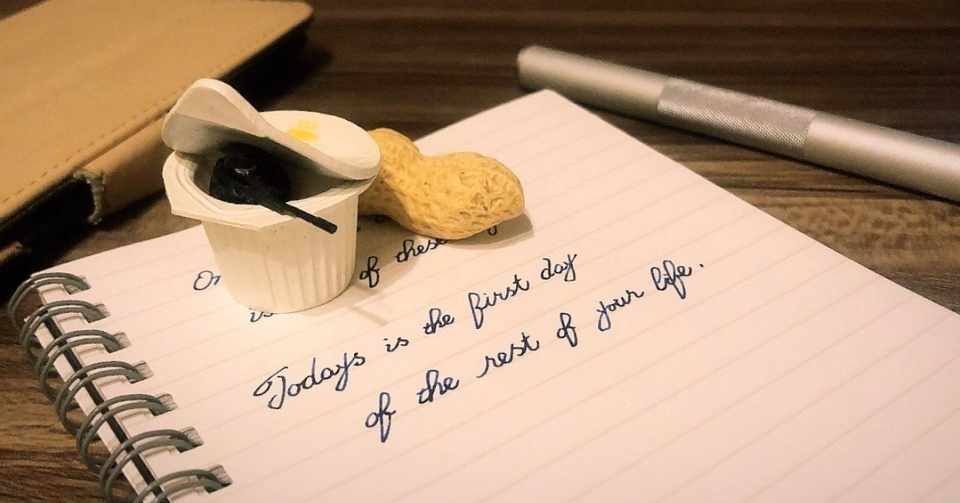 of these
is
Todays is the first day
of the rest of your life.